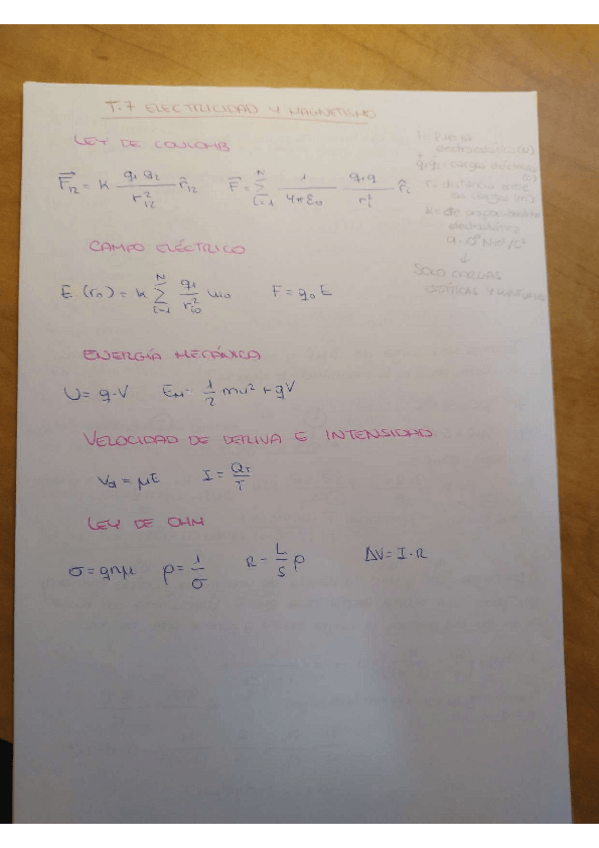 T.7 ELECTRICIDAD Y MAGNETISMO
LEY DE COULOMB
F₁₂ = k q₁ q₂ / r₁₂² r̂₁₂    F = Σ_{i=1}^{N} 1 / 4πε₀ q₁ q / r_i² r̂_i
electrostática (N)
q₁q₂ = cargas eléctricas (C)
r = distancia entre
las cargas (m)
k = cte proporcionalidad
electrostática
9·10⁹ N·m²/C²
↓
SOLO CARGAS
ESTÁTICAS Y PUNTUALES
CAMPO ELÉCTRICO
E (r₀) = k Σ_{i=1}^{N} q₁ / r_{i0}² u_{i0}    F = q₀ E
ENERGÍA MECÁNICA
U = q·V    E_M = 1/2 mv² + qV
VELOCIDAD DE DERIVA E INTENSIDAD
V_d = μE    I = Q_T / T
LEY DE OHM
σ = qnμ    ρ = 1/σ    R = L/S ρ    ΔV = I·R